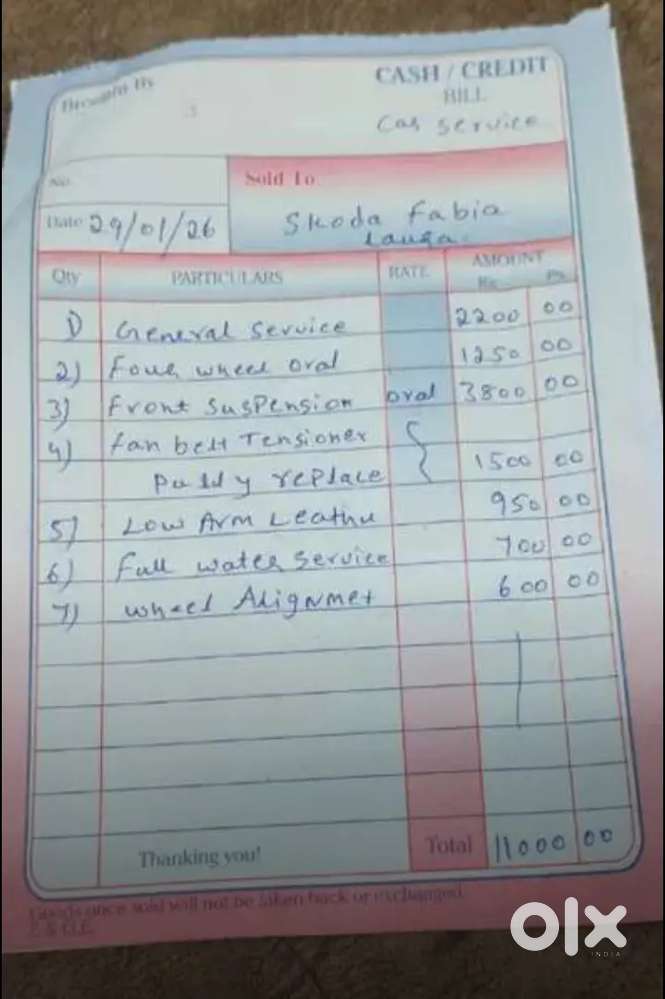 Brought By
CASH / CREDIT
BILL
Car service
No.
Sold To
Date 29/01/26
Skoda Fabia
Laura
Qty PARTICULARS RATE AMOUNT
Rs. Ps.
1) General service 2200 00
2) Four wheel oral 1250 00
3) Front suspension oral 3800 00
4) fan belt Tensioner
replace 1500 00
5) Low Arm 950 00
6) full water service 700 00
7) wheel Alignmet 600 00
Thanking you! Total 11000 00
Goods once sold will not be taken back or exchanged
E. & O.E.
olx
INDIA